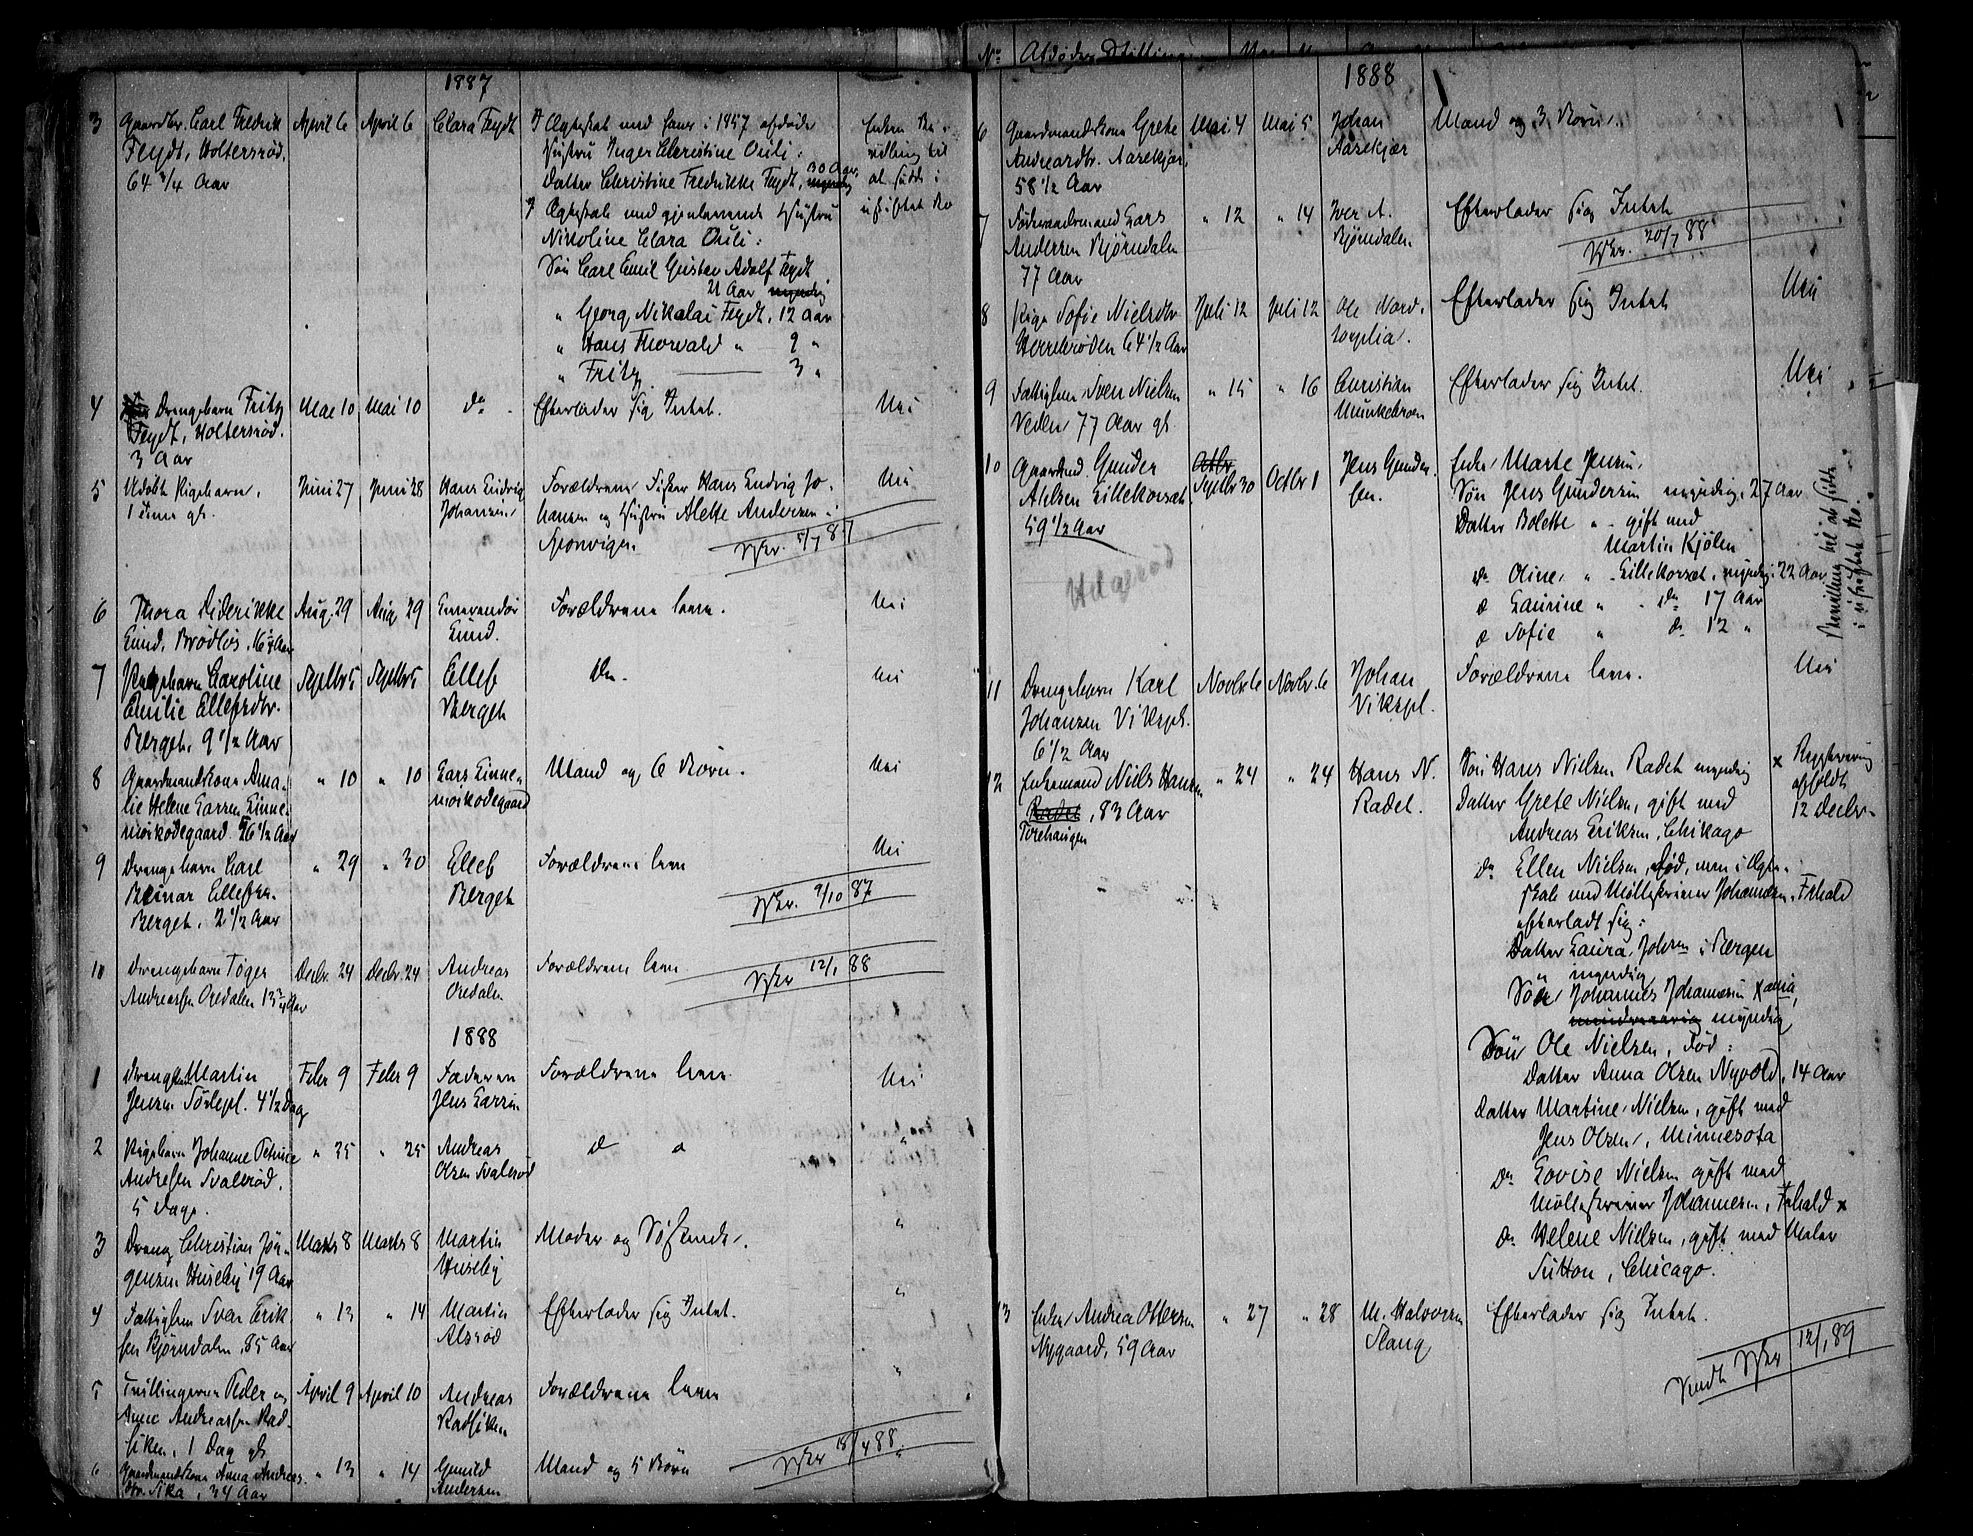 1887
3 Gaardbr. Carl Fredrik April 6 April 6 Clara Feydt I Ægteskab med hans i 1857 afdøde Enken Be-
Feydt, Holtersrød. Hustru Inger Christine Ouli: villing til
64 3/4 Aar Datter Christine Fredrikke Feydt, 30 Aar, myndig at sidde i
I Ægteskab med gjenlevende Hustru uskiftet Bo
Nikoline Clara Ouli:
Søn Carl Emil Gustav Adolf Feydt
21 Aar myndig
" Georg Nikolai Feydt, 12 Aar
" Hans Thorvald " 9 "
" Fritz 3 "
4 Drengebarn Fritz Mai 10 Mai 10 do Efterlader sig Intet. Nei
Feydt, Holtersrød.
3 Aar
5 Udøbt Pigebarn, Juni 27 Juni 28 Hans Ludvig Forældrene, Fisker Hans Ludvig Jo- Nei
1 time gl. Johansen, hansen og Hustru Alette Andersen i
Sponvigen. 5/7 87
6 Thora Diderikke Aug. 29 Aug. 29 Lund. Forældrene leve. Nei
Lund, Brødløs, 16 Aar
7 Pigebarn Caroline Septbr 5 Septbr 5 Ellef Do. Nei
Emilie Ellefsdtr. Berget
Berget, 9 1/2 Aar
8 Gaardmandskone Ama- " 10 " 10 Lars Linne- Mand og 6 Børn. Nei
lie Helene Larsen Linne- møikodegaard
møikodegaard 56 1/2 Aar
9 Drengebarn Carl " 29 " 30 Ellef Forældrene leve Nei
Einar Ellefsen Berget 9/10 87
Berget, 2 1/2 Aar
10 Drengebarn Tøger Decbr. 24 Decbr. 24 Andreas Forældrene leve 12/1 88
Andreassen Oredalen 13 3/4 Aar Oredalen
1888
1 Drengebarn Martin Febr 9 Febr 9 Faderen Forældrene leve Nei
Jensen Torpepl. 4 1/2 Dag Jens Larsen
2 Pigebarn Johanne Petrine " 25 " 25 Andreas d o "
Andresen Svalerød, Olsen Svalerød
5 Dage.
3 Dreng Christian Jør- Marts 8 Marts 8 Martin Moder og Søskende. "
gensen Huseby 19 Aar Huseby
4 Fattiglem Svar Erik- " 13 " 14 Martin Efterlader sig Intet. "
sen Bjørndalen, 85 Aar Alsrød
5 Tvillingerne Peder og April 9 April 10 Andreas Forældrene leve "
Anne Andreassen Rød- Rødsiken
siken, 1 Dag gl.
6 Gaardmandskone Anna Andreas- " 13 " 14 Gunild Mand og 5 Børn 18/4 88
dtr. Sika, 34 Aar Andersen
No Afdødes Stilling
1888
6 Gaardmandskone Grete Mai 4 Mai 5 Johan Mand og 3 Børn.
Andreasdtr. Aarekjær, Aarekjær
58 1/2 Aar
7 Føderaadsmand Lars " 12 " 14 Iver A. Efterlader sig Intet
Andersen Bjørndalen Bjørndalen 20/7 88
77 Aar
8 Pige Sofie Nielsdtr Juli 12 Juli 12 Ole Nord. Efterlader sig Intet Nei
Herrebrøden 64 1/2 Aar
9 Fattiglem Sven Nielsen " 15 " 16 Christian Efterlader sig Intet. Nei
Veden 77 Aar gl. Munkebroen
10 Gaardmd. Gunder Octbr Septbr 30 Octbr 1 Jens Gunder- Enke Marte Jensen,
Nielsen Lillekorsæt sen. Søn Jens Gundersen myndig, 27 Aar
59 1/2 Aar Datter Bolette " gift med
Martin Kjølen
do Oline " Lillekorsæt, myndig 22 Aar
do Laurine " do 17 Aar
do Sofie " do 12 "
Bevilling til at sidde
i uskiftet Bo.
11 Drengebarn Karl Novbr. 6 Novbr. 6 Johan Forældrene leve. Nei
Johansen Vikepl. Vikepl.
6 1/2 Aar
12 Enkemand Niels Hansen " 24 " 24 Hans N. Søn Hans Nielsen Radet myndig x Registrering
Radet, 83 Aar Radet. Datter Grete Nielsen, gift med afholdt
Torehaugen Andreas Eriksen, Chikago 12 Decbr.
do Ellen Nielsen, død, men i Ægte-
skab med Møllesvinner Johannesen, Frhald
efterladt sig:
Datter Laura Johsn i Bergen
" myndig
Søn Johannes Johannesen Xania,
mindreaarig myndig
Søn Ole Nielsen, død:
Datter Anna Olsen Nyvold, 14 Aar
Datter Martine Nielsen, gift med
Jens Olsen, Minnesota
do Lovise Nielsen gift med
Johannesen, Frhald x
do Helene Nielsen, gift med Maler
Sutton, Chicago.
13 Enke Andrea Ottersen " 27 " 28 M. Halvorsen Efterlader sig Intet.
Nygaard, 59 Aar Stang
12/1 89